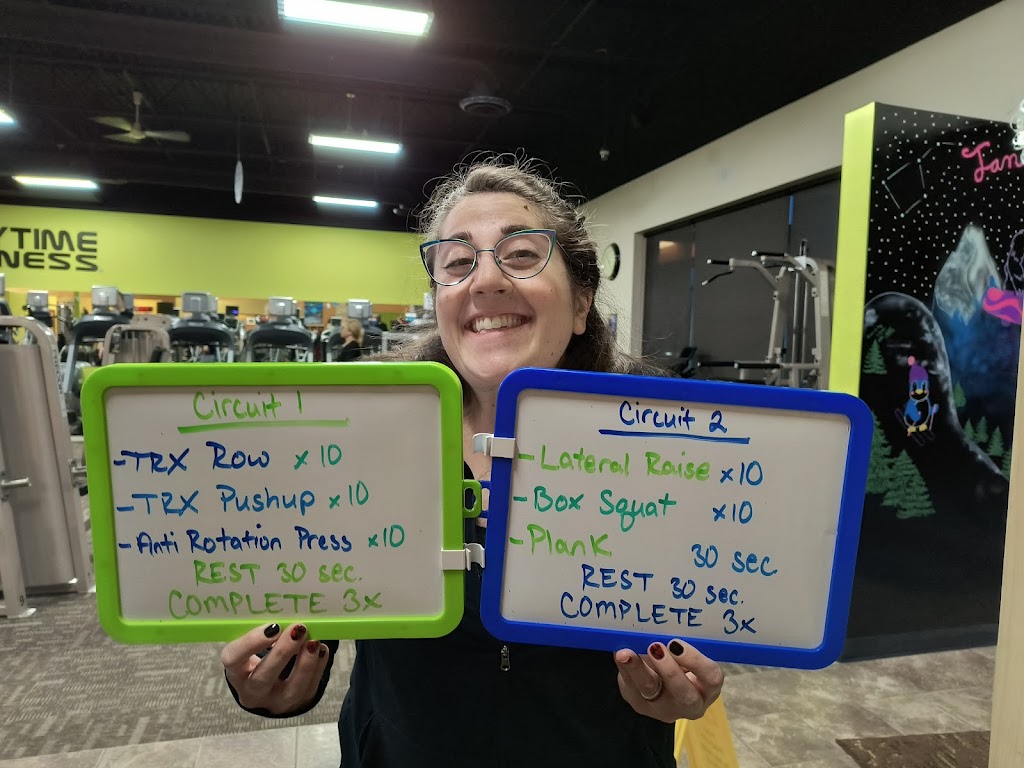 YTIME
NESS
Circuit 1
-TRX Row x10
-TRX Pushup x10
-Anti Rotation Press x10
REST 30 sec.
COMPLETE 3x
Circuit 2
-Lateral Raise x10
-Box Squat x10
-Plank 30 sec
REST 30 sec.
COMPLETE 3x